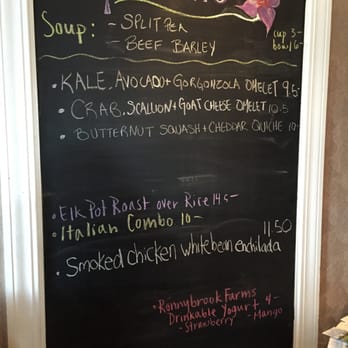 Soup: - SPLIT PEA
- BEEF BARLEY
cup 3-
bowl 6-
• KALE, AVOCADO + GORGONZOLA OMELET 9.5-
• CRAB, SCALLION + GOAT CHEESE OMELET 10.5
• BUTTERNUT SQUASH + CHEDDAR QUICHE 10-
• Elk Pot Roast over Rice 14.5-
• Italian Combo 10-
11.50
• Smoked chicken white bean enchilada
• Ronnybrook Farms
Drinkable Yogurt 4-
- Strawberry - Mango